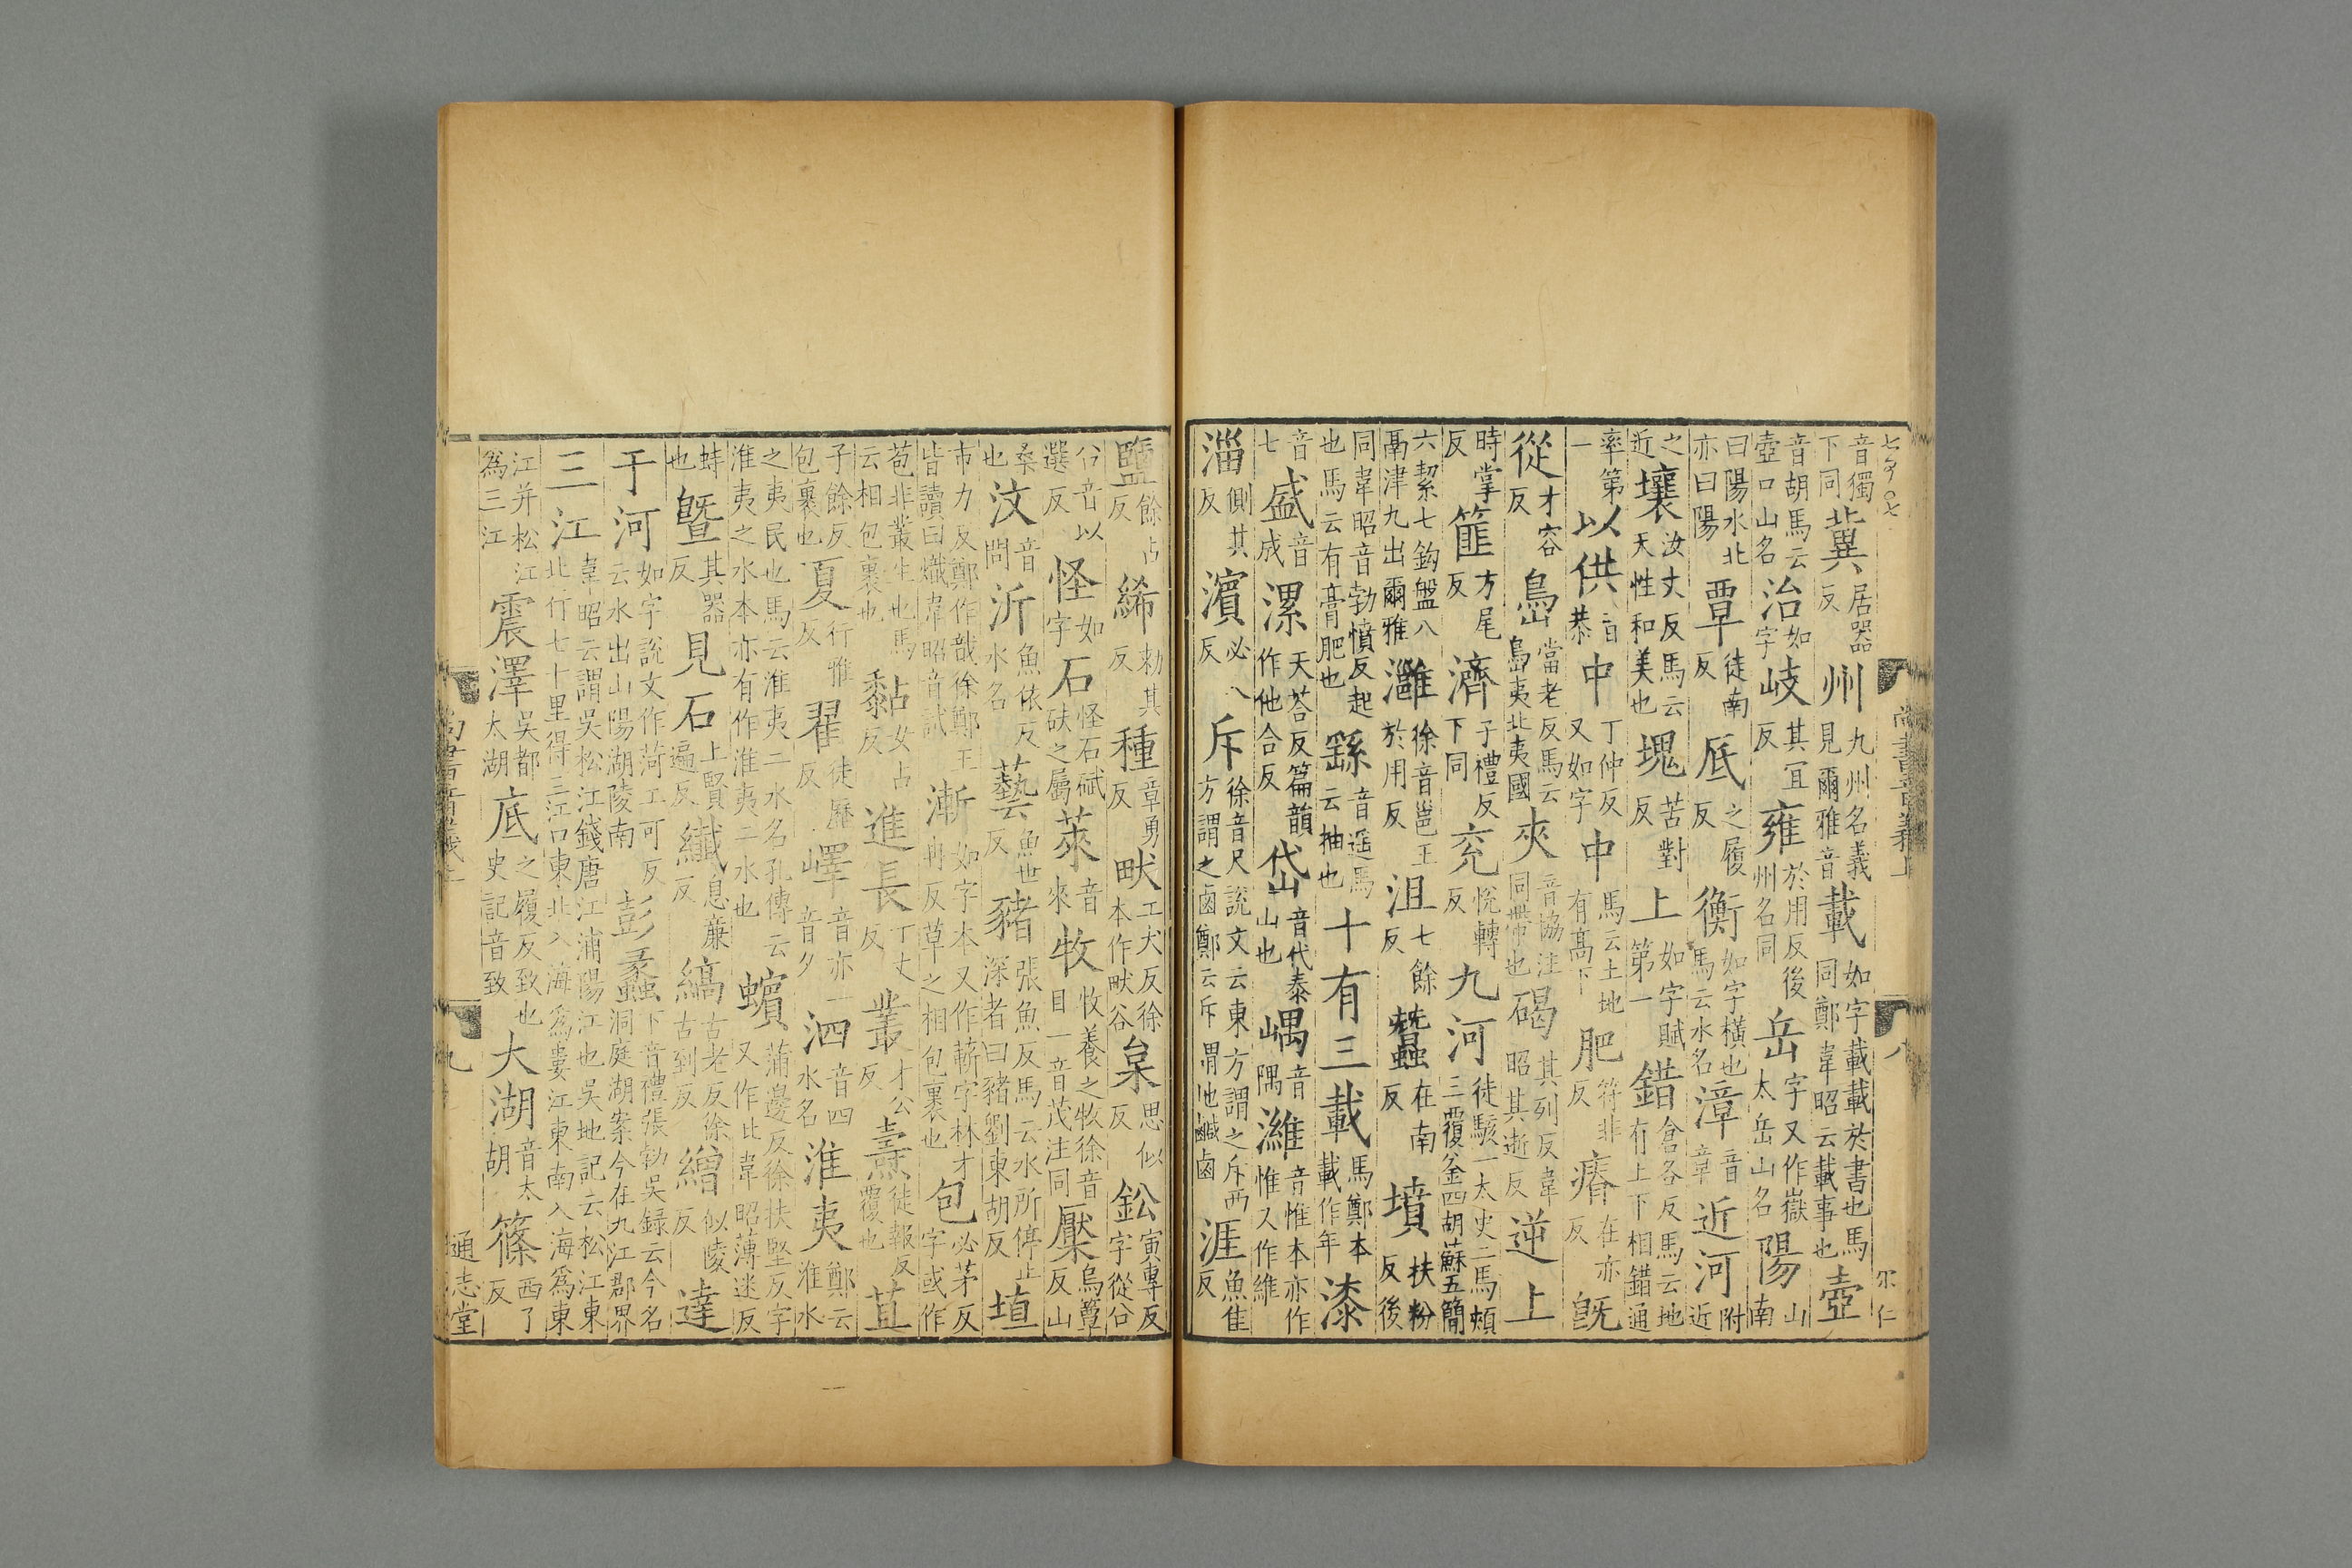 七百〇七　尚書音義上　八　尔仁
音獨下同冀居器反州九州名義見爾雅音載如字載載於書也馬同鄭韋昭云載事也壺
音胡馬云壺口山名治如字岐其宜反雍於用反後州名同岳字又作嶽太岳山名陽山南
曰陽水北亦曰陽覃徒南反厎之履反衡如字橫也馬云水名漳音章近河附近
之近壤汝丈反馬云天性和美也塊苦對反上如字賦第一錯倉各反馬云地有上下相錯通
率第一以供音恭中丁仲反又如字中馬云土地有高下肥符非反瘠在亦反旣
從才容反㠀當老反馬云㠀夷北夷國夾音協注同帶也碣其列反韋昭其逝反逆上
時掌反篚方尾反濟子禮反下同兖悅轉反九河徒駭一太史二馬頰三覆釜四胡蘇五簡
六絜七鈎盤八鬲津九出爾雅灉徐音邕王於用反沮七餘反蠶在南反墳扶粉反後
同韋昭音勃憤反起也馬云有膏肥也繇音遥馬云抽也十有三載馬鄭本載作年漆
音七盛音成漯天荅反篇韻作他合反岱音代泰山也嵎音隅濰音惟本亦作惟又作維
淄側其反濱必人反斥徐音尺說文云東方謂之斥西方謂之鹵鄭云斥謂地鹹鹵涯魚隹反
鹽餘占反絺勑其反種章勇反畎工犬反徐本作畎谷枲思似反鈆寅專反字從㕣
㕣音以選反怪如字石怪石碔砆之屬萊音來牧牧養之牧徐音目一音茂注同檿烏簟反山
桑也汶音問沂魚依反水名藝魚世反豬張魚反馬云水所停止深者曰豬劉東胡反埴
市力反鄭作戠徐鄭王皆讀曰熾韋昭音試漸如字本又作蔪字林才冉反草之相包裹也包必茅反字或作
苞非叢生也馬云相包裹也黏女占反進長丁丈反叢才公反燾徒報反覆也苴
子餘反包裹也夏行雅反翟徒歷反嶧音亦一音夕泗音四水名淮夷鄭云淮水
之夷民也馬云淮夷二水名孔傳云淮夷之水本亦有作淮夷二水也蠙蒲邊反徐扶堅反字又作玭韋昭薄迷反
蚌也曁其器反見石上賢遍反纖息廉反縞古老反徐古到反繒似陵反達
于河如字說文作菏工可反云水出山陽湖陵南彭蠡下音禮張勃吳録云今名洞庭湖案今在九江郡界
三江韋昭云謂吳松江錢唐江浦陽江也吳地記云松江東北行七十里得三江口東北入海爲婁江東南入海爲東
江并松江爲三江震澤吳都太湖厎之履反致也史記音致大湖音太胡篠西了反
尚書音義上　九　通志堂